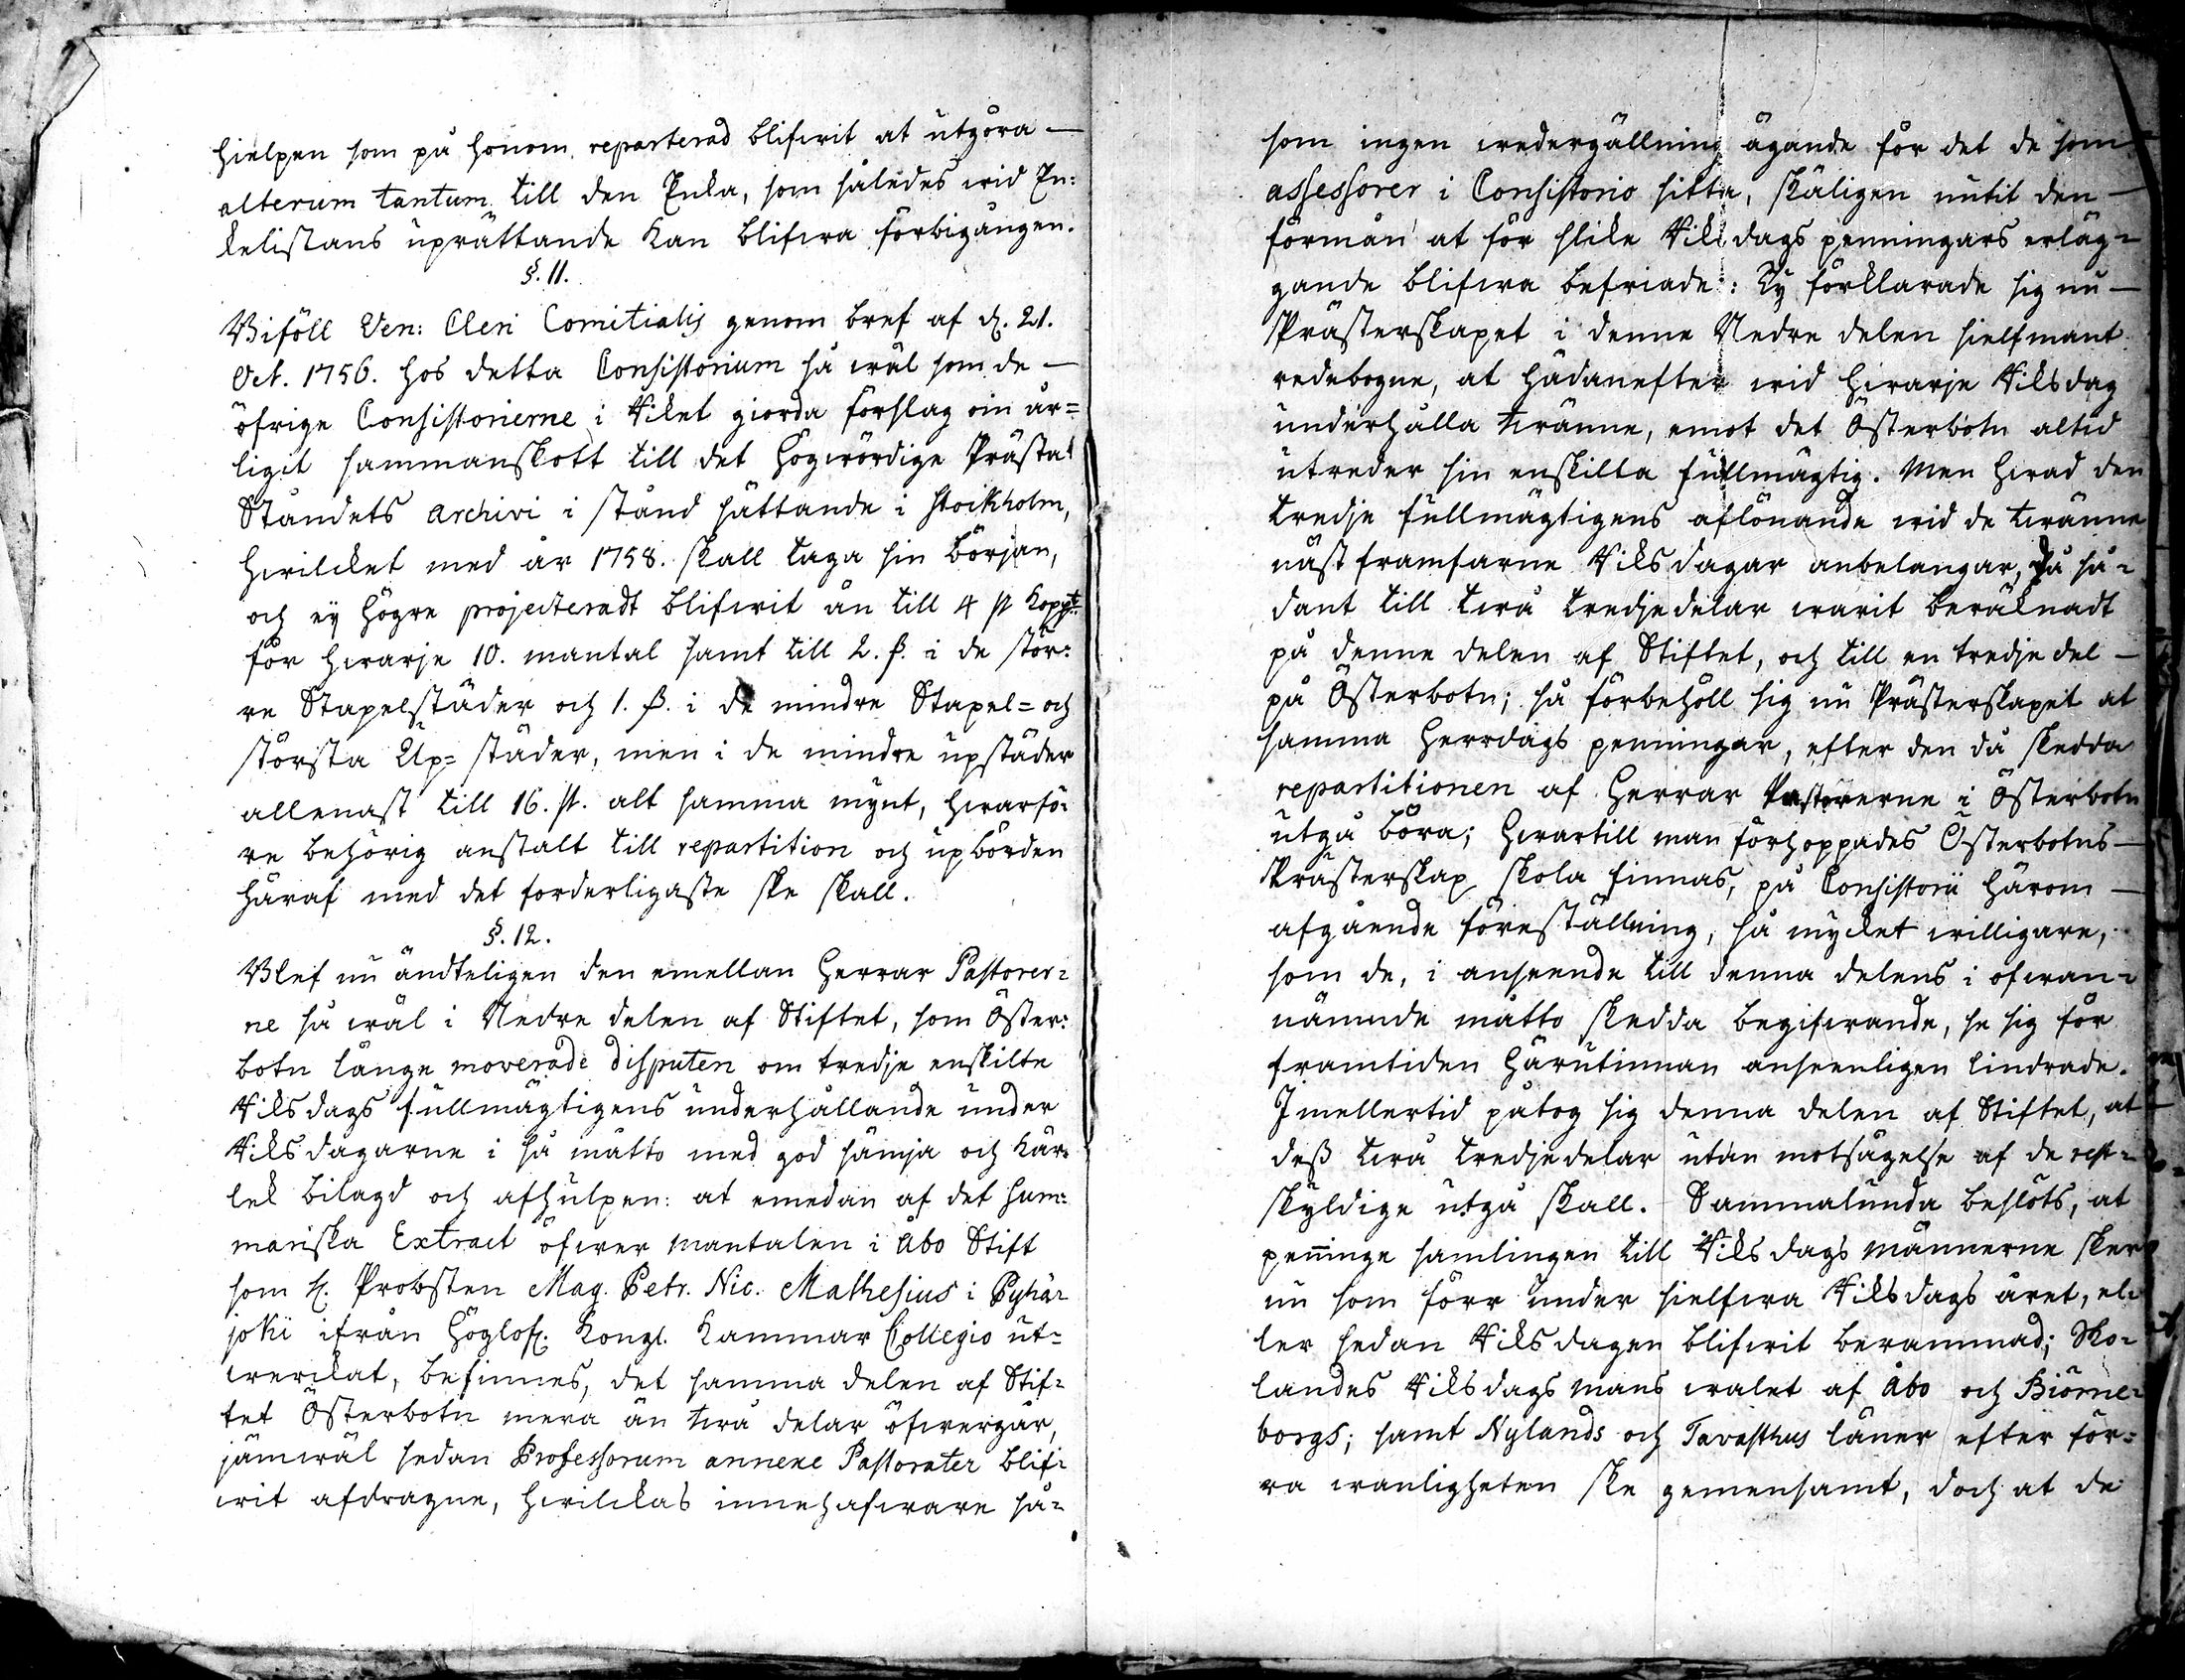 hielpen som på honom reparterad blifwit at utgöra —
alterum tantum till den Enka, som således wid En=
kelistans uprättande kan blifwa förbigången.
§. 11.
Biföll Ven: Cleri Comitialis genom bref af d. 21.
Oct. 1756. hos detta Consistorium så wäl som de —
öfrige Consistorierne i Riket giorda förslag om år=
ligit sammanskott till det Högwördige Prästa
Ståndets archivi i stånd sättande i Stockholm,
hwilcket med år 1758. skall taga sin början,
och ej högre projecteradt blifwit än till 4 st Koppt.
för hwarje 10. mantal samt till 2. ß. i de stör=
re Stapelstäder och 1. ß. i de mindre Stapel= och
största Up= städer, men i de mindre upstäder
allenast till 16. st. alt samma mynt, hwarfö=
re behörig anstalt till repartition och upbörden
häraf med det forderligaste ske skall.
§. 12.
Blef nu ändteligen den emellan Herrar Pastorer=
ne så wäl i Nedre delen af Stiftet, som Öster=
botn länge moverade disputen om tredje enskilte
Riksdags fullmägtigens underhållande under
Riksdagarne i så måtto med god sämja och kär=
lek bilagd och afhulpen: at emedan af det sum=
mariska Extract öfwer mantalen i Åbo Stift
som H. Probsten Mag. Petr. Nic. Mathesius i Pyhä=
joki ifrån Höglofl. Kongl. Kammar Collegio ut=
werckat, befinnes, det samma delen af Stif=
tet Österbotn mera än twå delar öfwergår,
jämwäl sedan Professorum annexe Pastorater blif=
wit afdragne, hwilckas innehafware så=
som ingen wedergällning ägande för det de som
assessorer i Consistorio sitta, skäligen nutit den —
förmån at för slike Riksdags penningars erläg=
gande blifwa befriade: Ty förklarade sig nu —
Prästerskapet i denne Nedre delen sielfmant
redebogne, at hädanefter wid hwarje Riksdag
underhålla twänne, emot det Österbotn altid
utreder sin enskilta fullmägtig. Men hwad den
tredje fullmägtigens aflönande wid de twänne
näst framfarne Riksdagar anbelangar, då så=
dant till twå tredjedelar warit beräknadt
på denne delen af Stiftet, och till en tredje del —
på Österbotn; så förbehöll sig nu Prästerskapet at
samma Herrdags penningar, efter den då skedda
repartitionen af Herrar Pastorerne i Österbotn
utgå böra; hwartill man förhoppades Österbotns —
Prästerskap skola finnas, på Consistorii härom —
afgående föreställning, så mycket willigare,
som de, i anseende till denna delens i ofwan=
nämnde måtto skedda begifwande, se sig för
framtiden härutinnan anseenligen lindrade.
Imellertid påtog sig denna delen af Stiftet, at —
deß twå tredjedelar utan motsägelse af de rest=
skyldige utgå skall. Sammalunda beslöts, at
peninge samlingen till Riksdags männerne sker
nu som förr under sielfwa Riksdags året, el=
ler sedan Riksdagen blifwit berammad; Sko=
landes Riksdags mans walet af Åbo och Biörne=
borgs; samt Nylands och Tavasthus läner efter för=
ra wanligheten ske gemensamt, doch at de